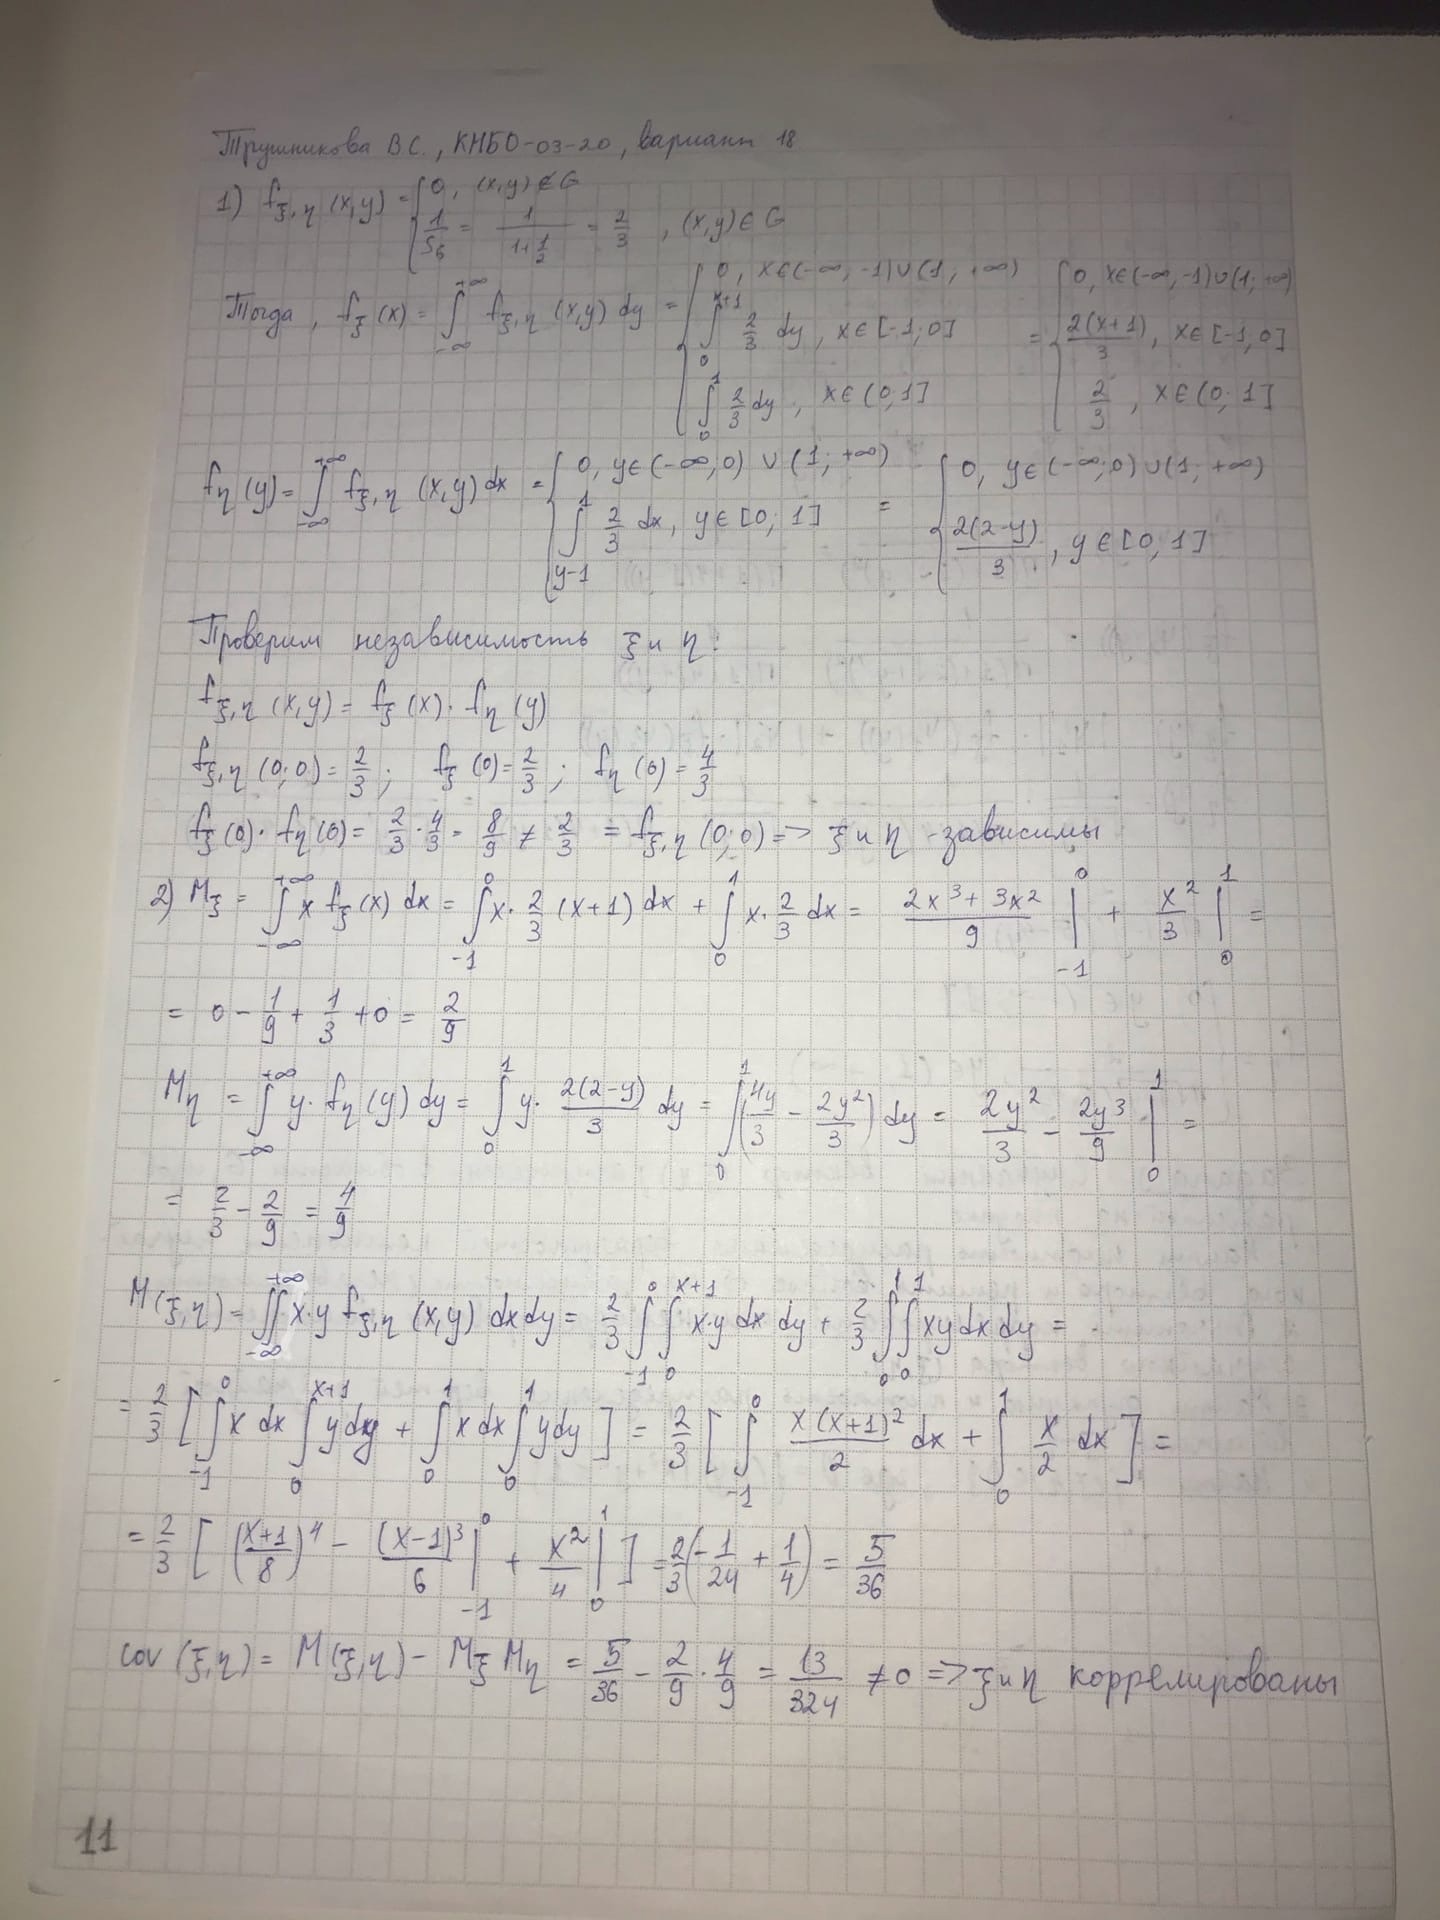 Трушникова В С., КНБО-03-20, вариант 18
1) f_{ξ,η}(x,y) = { 0, (x,y) ∉ G
1/S_G = 1/(1+1/2) = 2/3, (x,y) ∈ G
Тогда, f_ξ(x) = ∫_{-∞}^{+∞} f_{ξ,η}(x,y) dy = { 0, x∈(-∞,-1)∪(1;+∞) ; ∫_0^{x+1} 2/3 dy, x∈[-1;0] ; ∫_0^1 2/3 dy, x∈(0,1] = { 0, x∈(-∞,-1)∪(1;+∞) ; 2(x+1)/3, x∈[-1,0] ; 2/3, x∈(0;1]
f_η(y) = ∫_{-∞}^{+∞} f_{ξ,η}(x,y) dx = { 0, y∈(-∞,0) ∪ (1;+∞) ; ∫_{y-1}^1 2/3 dx, y∈[0;1] = { 0, y∈(-∞;0)∪(1;+∞) ; 2(2-y)/3, y∈[0,1]
Проверим независимость ξ и η:
f_{ξ,η}(x,y) = f_ξ(x)·f_η(y)
f_{ξ,η}(0;0) = 2/3; f_ξ(0) = 2/3; f_η(0) = 4/3
f_ξ(0)·f_η(0) = 2/3·4/3 = 8/9 ≠ 2/3 = f_{ξ,η}(0;0) => ξ и η - зависимы
2) Mξ = ∫_{-∞}^{+∞} x f_ξ(x) dx = ∫_{-1}^0 x·2/3 (x+1) dx + ∫_0^1 x·2/3 dx = (2x^3+3x^2)/9 |_{-1}^0 + x^2/3 |_0^1 =
= 0 - 1/9 + 1/3 + 0 = 2/9
Mη = ∫_{-∞}^{+∞} y·f_η(y) dy = ∫_0^1 y·2(2-y)/3 dy = ∫_0^1 (4y/3 - 2y^2/3) dy = 2y^2/3 - 2y^3/9 |_0^1 =
= 2/3 - 2/9 = 4/9
M(ξ,η) = ∬_{-∞}^{+∞} x·y f_{ξ,η}(x,y) dx dy = 2/3 ∫_{-1}^0 ∫_0^{x+1} x·y dx dy + 2/3 ∫_0^1 ∫_0^1 xy dx dy =
= 2/3 [ ∫_{-1}^0 x dx ∫_0^{x+1} y dy + ∫_0^1 x dx ∫_0^1 y dy ] = 2/3 [ ∫_{-1}^0 x(x+1)^2/2 dx + ∫_0^1 x/2 dx ] =
= 2/3 [ ((x+1)/8)^4 - (x-1)^3/6 |_{-1}^0 + x^2/4 |_0^1 ] = 2/3(-1/24 + 1/4) = 5/36
cov(ξ,η) = M(ξ,η) - Mξ Mη = 5/36 - 2/9·4/9 = 13/324 ≠ 0 => ξ и η коррелированы
11